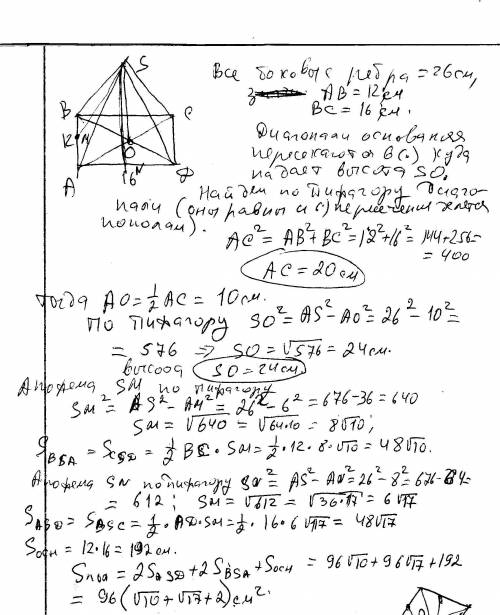 S
Все боковые ребра = 26 см,
AB = 12 см
BC = 16 см.
B
C
12
M
O
A
16
N
D
Диагонали основания
пересекаются в (.) куда
падает высота SO.
Найдем по Пифагору диаго-
нали (они равны и (.) пересечения делятся
пополам).
AC² = AB² + BC² = 12² + 16² = 144 + 256 =
= 400
AC = 20 см
Тогда AO = 1/2 AC = 10 см.
По Пифагору SO² = AS² - AO² = 26² - 10² =
= 576 => SO = √576 = 24 см.
высота SO = 24 см
Апофема SM по Пифагору
SM² = AS² - AM² = 26² - 6² = 676 - 36 = 640
SM = √640 = √64·10 = 8√10;
S BSA = S CSD = 1/2 · SM = 1/2 · 12 · 8 · √10 = 48√10.
Апофема SN по Пифагору SN² = AS² - AN² = 26² - 8² = 676 - 64 =
= 612; SM = √612 = √36·17 = 6√17
S ASD = S BSC = 1/2 · AD · SM = 1/2 · 16 · 6√17 = 48√17
S осн = 12·16 = 192 см.
S пов = 2S ASD + 2S BSA + S осн = 96√10 + 96√17 + 192
= 96(√10 + √17 + 2) см².